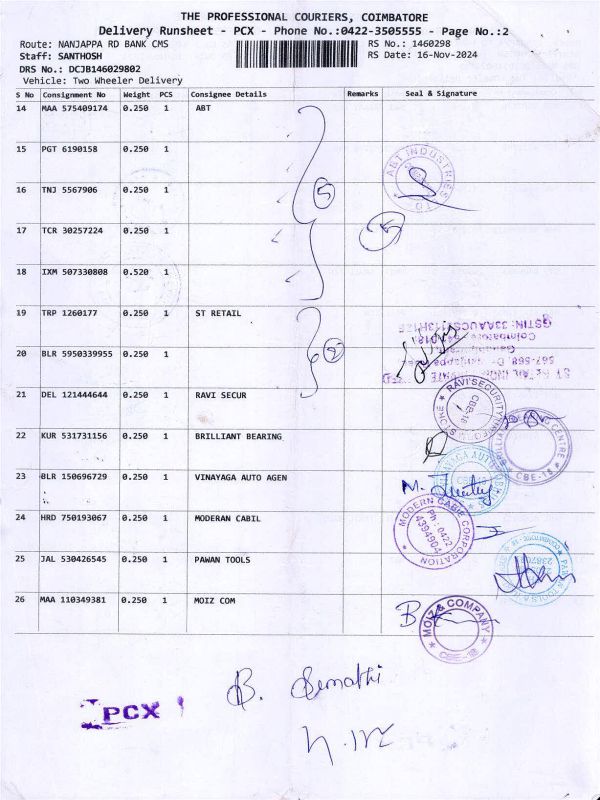 THE PROFESSIONAL COURIERS, COIMBATORE
Delivery Runsheet - PCX - Phone No.:0422-3505555 - Page No.:2
Route: NANJAPPA RD BANK CMS RS No.: 1460298
Staff: SANTHOSH RS Date: 16-Nov-2024
DRS No.: DCJB146029802
Vehicle: Two Wheeler Delivery
S No Consignment No Weight PCS Consignee Details Remarks Seal & Signature
14 MAA 575409174 0.250 1 ABT
15 PGT 6190158 0.250 1
ABT INDUSTRIES LTD
16 TNJ 5567906 0.250 1 5
17 TCR 30257224 0.250 1
18 IXM 507330808 0.520 1
19 TRP 1260177 0.250 1 ST RETAIL
20 BLR 5950339955 0.250 1 2
21 DEL 121444644 0.250 1 RAVI SECUR
RAVI SECURITY CBE-18
22 KUR 531731156 0.250 1 BRILLIANT BEARING
CENTRE CBE-18
23 BLR 150696729 0.250 1 VINAYAGA AUTO AGEN
VINAYAGA AUTO
24 HRD 750193067 0.250 1 MODERAN CABIL
MODERN CABIL CORPORATION Ph : 0422 4394904
25 JAL 530426545 0.250 1 PAWAN TOOLS
26 MAA 110349381 0.250 1 MOIZ COM
MOIZ & COMPANY CBE-18
PCX